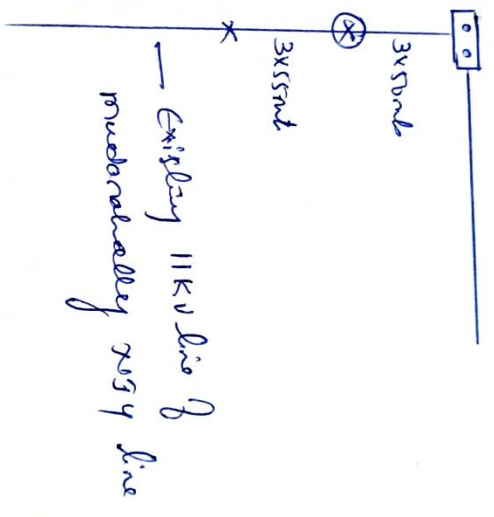 3x50mt
3x55mt
Existing 11KV line of
mudanahalley NJY line